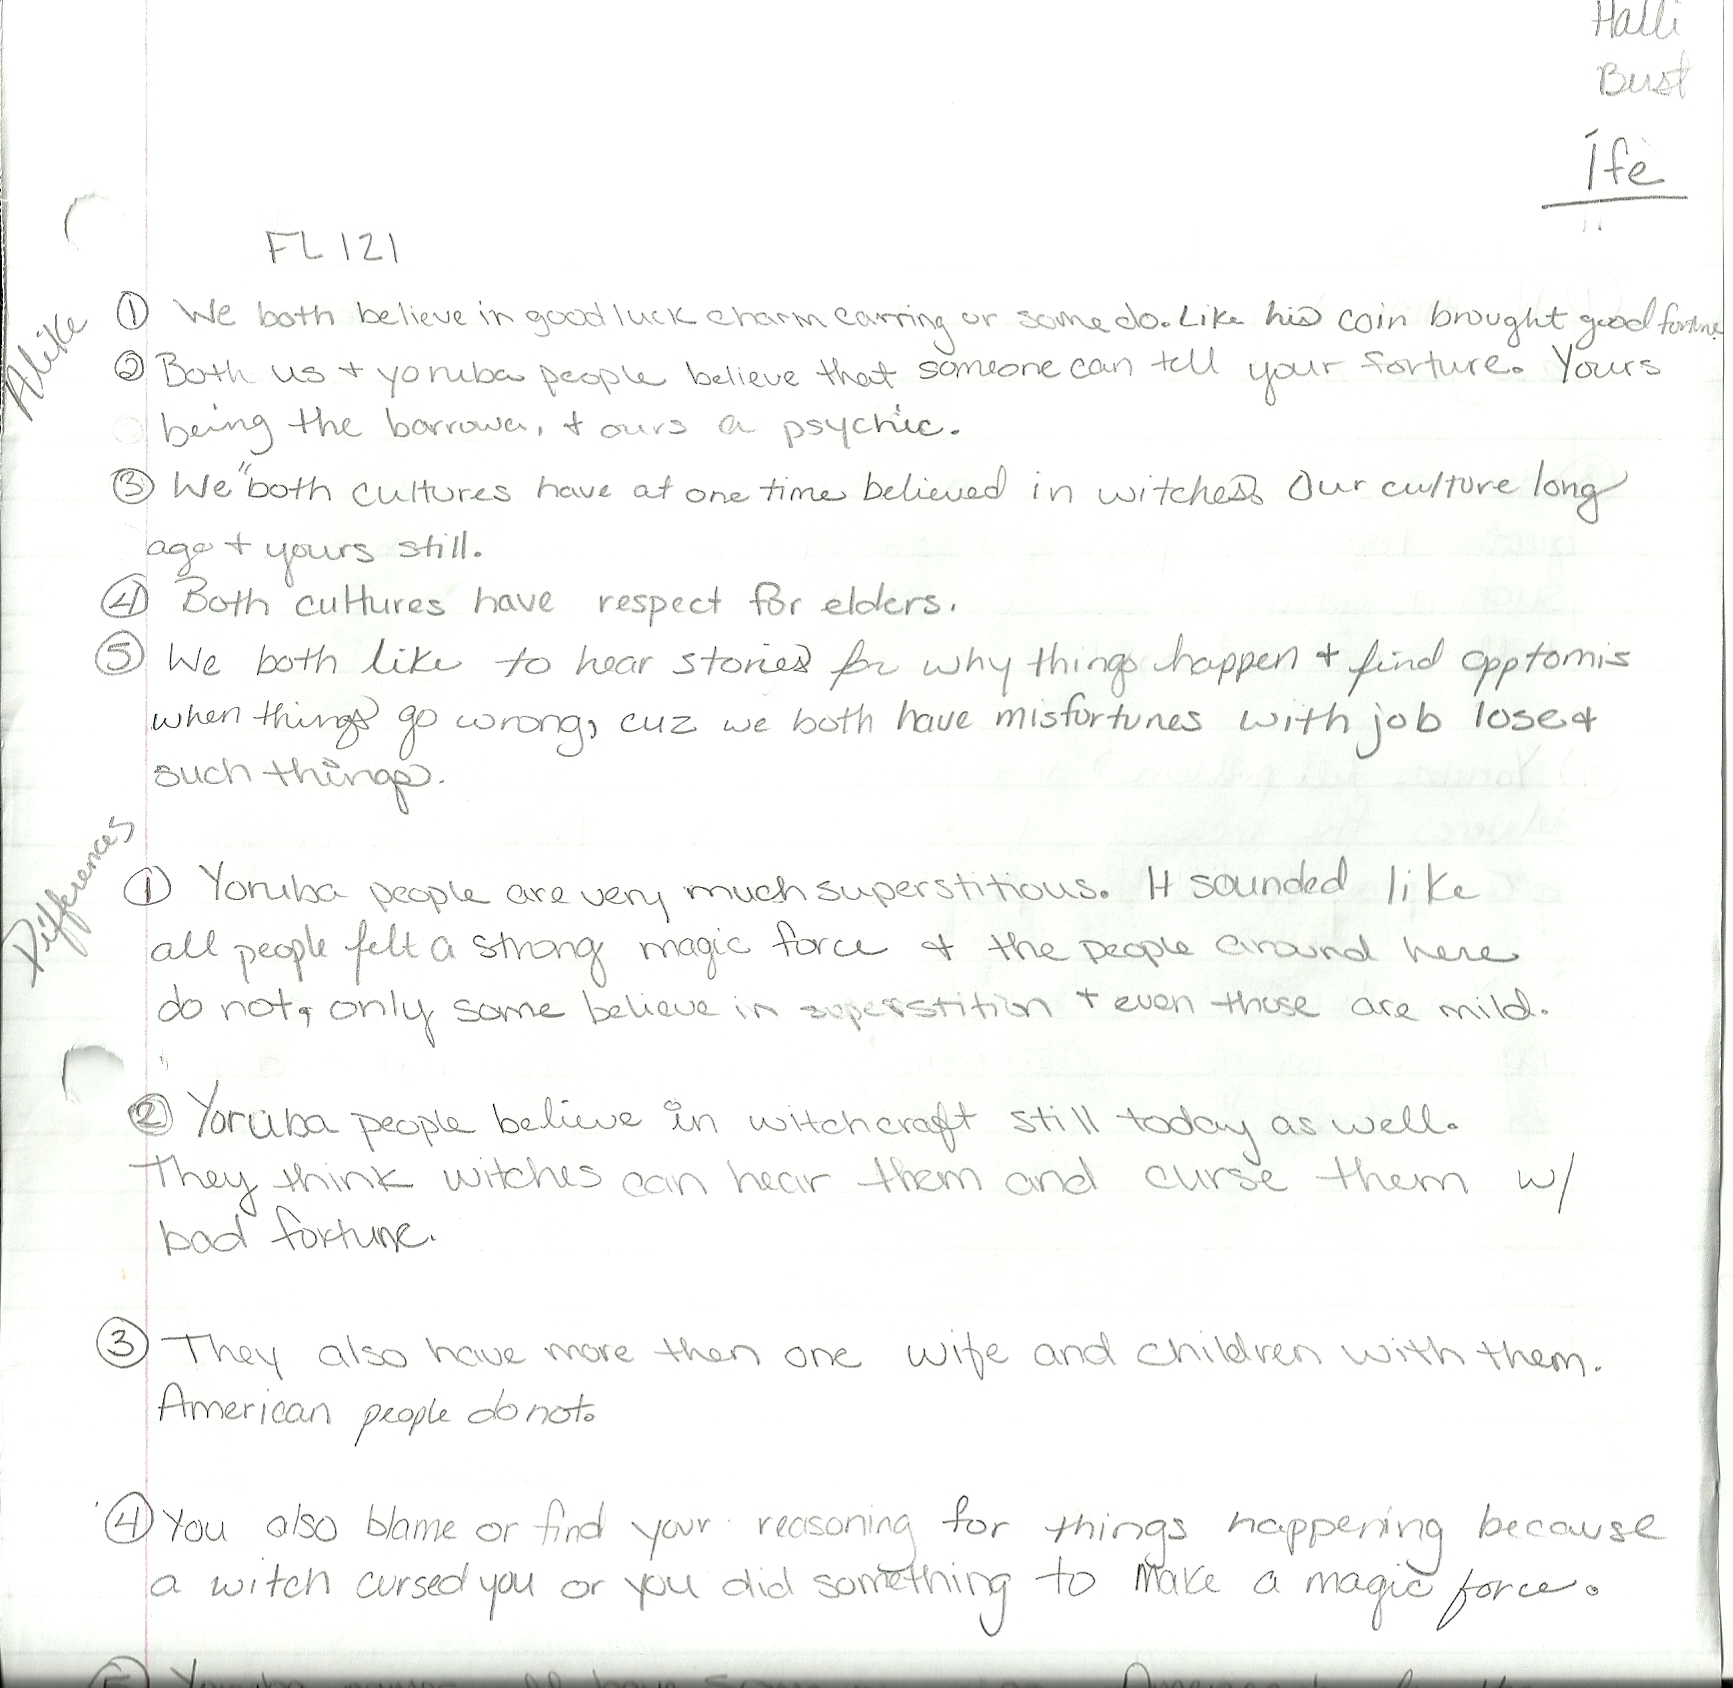 Halli
Bust
Ífè
FL 121
Alike
① We both believe in good luck charm carring or some do. Like his coin brought good fortune
② Both us + yoruba people believe that someone can tell your forture. Yours
being the barrower, + ours a psychic.
③ We "both cultures have at one time believed in witches. Our culture long
ago + yours still.
④ Both cultures have respect for elders.
⑤ We both like to hear stories for why things happen + find opptomis
when things go wrong, cuz we both have misfortunes with job lose +
such things.
Differences
① Yoruba people are very much superstitious. It sounded like
all people felt a strong magic force + the people around here
do not, only some believe in superstition + even those are mild.
② Yoruba people believe in witchcraft still today as well.
They think witches can hear them and curse them w/
bad fortune.
③ They also have more then one wife and children with them.
American people do not.
④ You also blame or find your reasoning for things happening because
a witch cursed you or you did something to make a magic force.
⑤ Yoruba